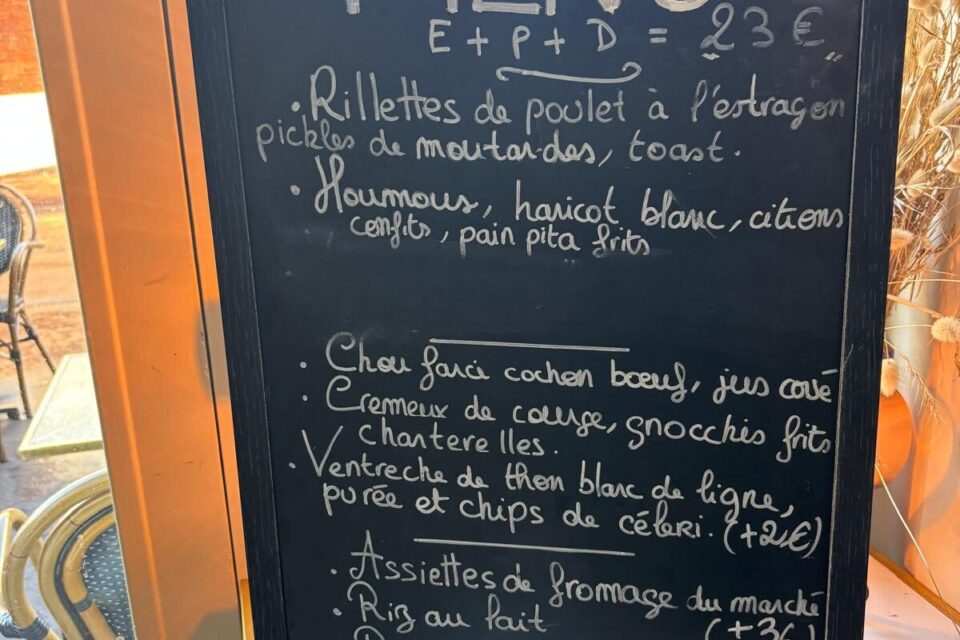 MENU
E + P + D = 23 €
• Rillettes de poulet à l'estragon
pickles de moutardes, toast.
• Houmous, haricot blanc, citrons
confits, pain pita frits
• Chou farci cochon bœuf, jus
• Cremeux de courge, gnocchis frits
chanterelles.
• Ventreche de thon blanc de ligne,
purée et chips de céleri. (+2€)
• Assiettes de fromage du marché
• Riz au lait (+3€)